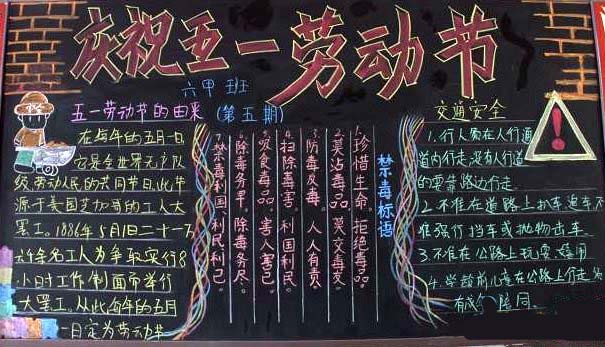 庆祝五一劳动节
六甲班
(第五期)
五一劳动节的由来
在每年的五月一日
它是全世界无产阶
级、劳动人民的共同节日,此节
源于美国芝加哥的工人大
罢工。1886年5月1日二十一万
六千余名工人为争取实行8
小时工作制而举行
大罢工,从此每年的五月
一日定为劳动节
禁毒标语
1.珍惜生命。拒绝毒品
2.莫沾毒品。莫交毒友。
3.防毒反毒。人人有责
4.扫除毒害。利国利民。
5.吸食毒品。害人害己。
6.除毒务早。除毒务尽。
7.禁毒利国、利民利己。
交通安全
1.行人需在人行通
道内行走,没有人行道
的要靠路边行走.
2.不准在道路上扒车追车不
准强行挡车或抛物击车.
3.不准在公路上玩耍、
4.学龄前儿童在公路上行走
有成人陪同.